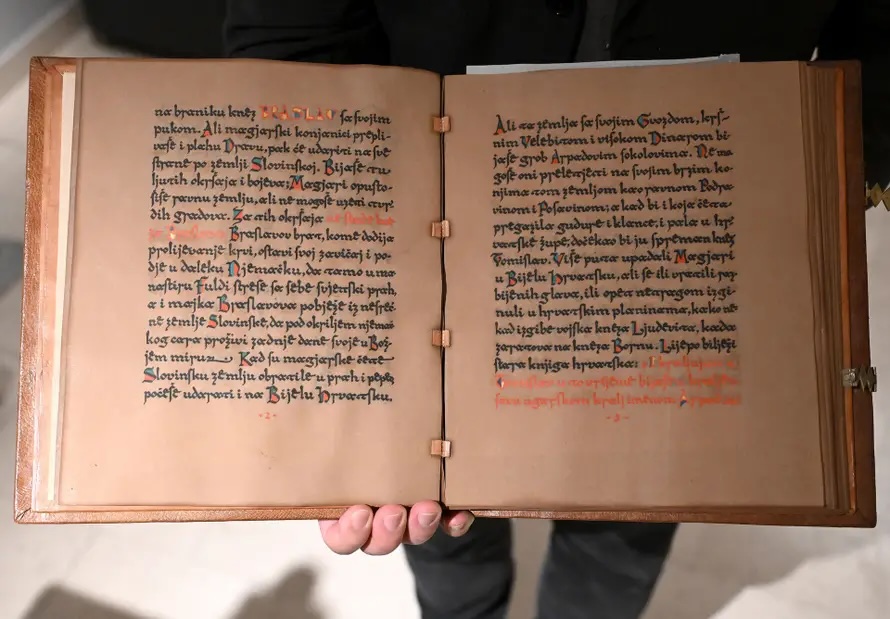 na braniku knez BRASLAV sa svojim
pukom. Ali magjarski konjanici prepli-
vaše i plahu Dravu, pak će udariti na sve
strane po zemlji Slovinskoj. Bijaše tu
ljutih okršaja i bojeva: Magjari opusto-
šiše ravnu zemlju, ali ne mogoše uzeti tvr-
dih gradova. Za tih okršaja
Braslavov brat, kome dodija
prolijevanje krvi, ostavi svoj zavičaj i po-
dje u daleku Njemačku, da tamo u ma-
nastiru Fuldi strese sa sebe svjetski prah,
a i majka Braslavova pobježe iz nesreć-
ne zemlje Slovinske, da pod okriljem njemač-
kog cara proživi zadnje dane svoje u Bož-
jem miru. Kad su magjarske čete
Slovinsku zemlju obratile u prah i pepeo,
počeše udarati i na Bijelu Hrvatsku.
-2-
Ali ta zemlja sa svojim Gvozdom, krš-
nim Velebitom i visokom Dinarom bi-
jaše grob Arpadovim sokolovima. Ne mo-
goše oni preletjeti na svojim brzim ko-
njima tom zemljom kao ravnom Podra-
vinom i Posavinom; a kad bi i koja četa
pregazila gudure i klance, i pala u hr-
vatske župe, dočekao bi ju spreman knez
Tomislav. Više puta upadali Magjari
u Bijelu Hrvatsku, ali se ili vratili raz-
bijenih glava, ili opet netragom izgi-
nuli u hrvatskim planinama, kako ne-
kad izgibe vojska kneza Ljudevita, kada
zaratova na kneza Bornu. Lijepo bilježi
stara knjiga hrvatska: I kraljujući
Tomislav u to vrijeme bijaše
s ugarskom kralj imenom
-3-